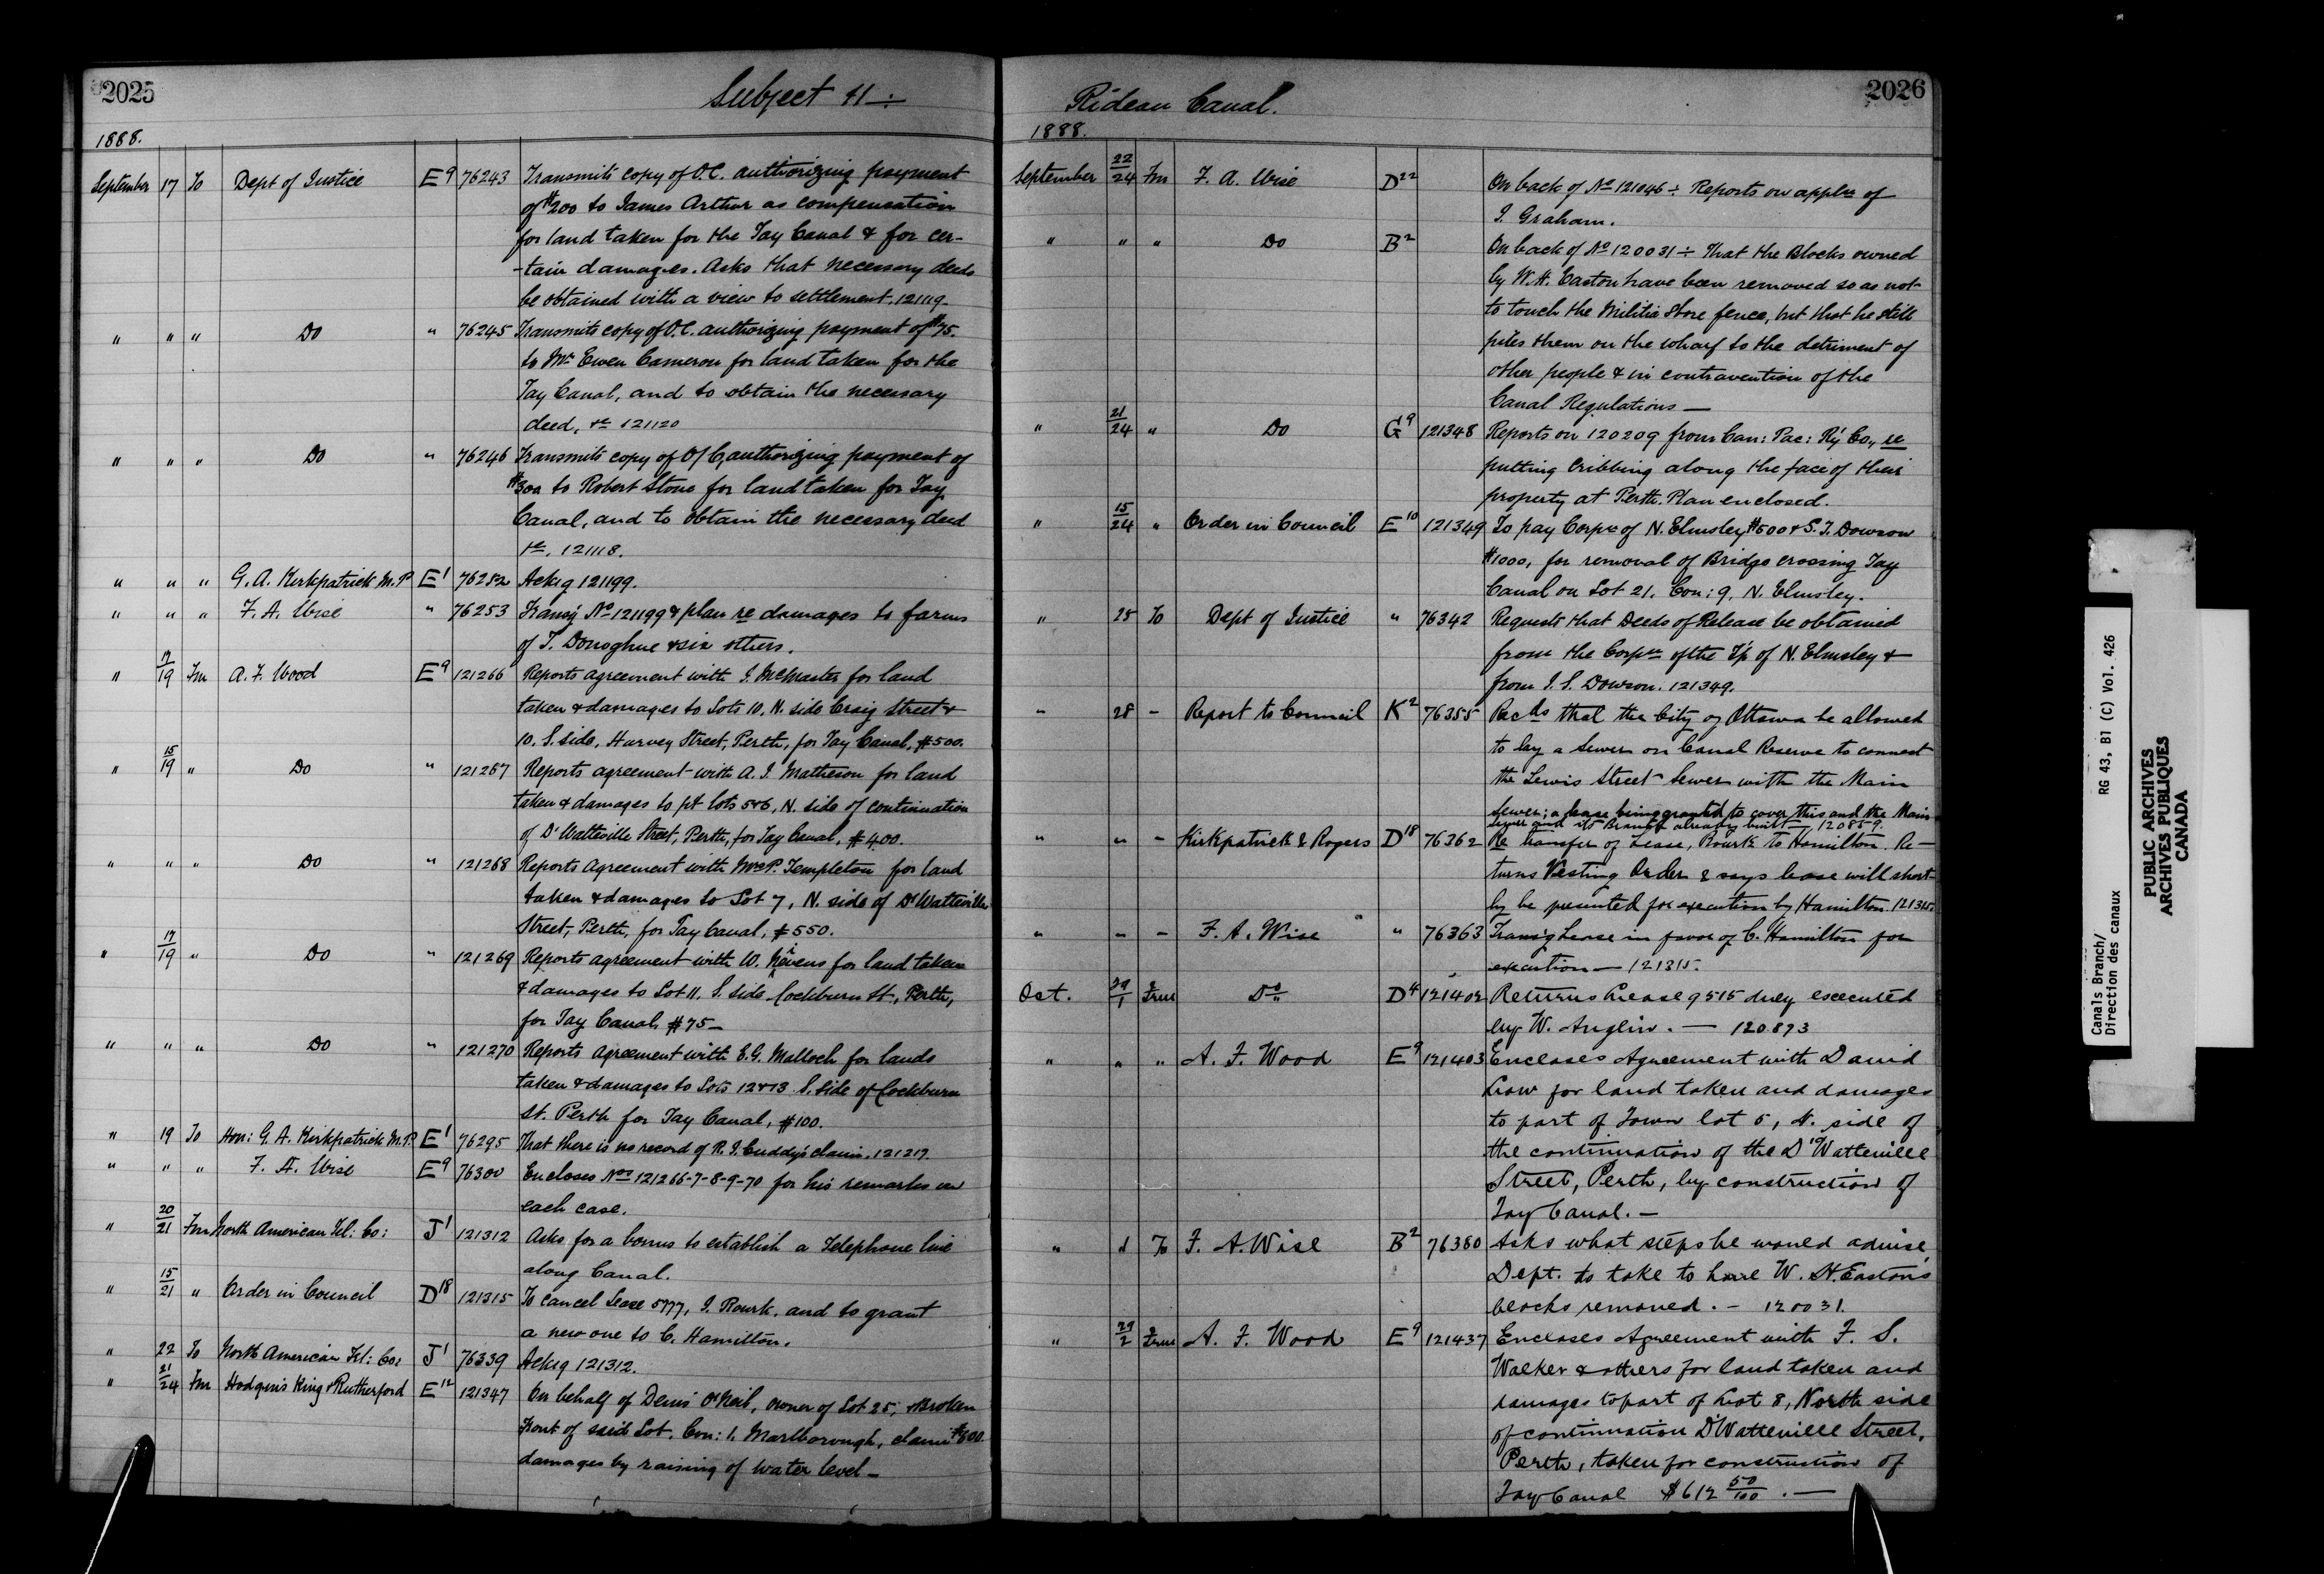 2025
Subject 41 ÷
1888.
September 17 To Dept of Justice E9 76243 Transmits copy of O.C. authorizing payment
of $200 to James Arthur as compensation
for land taken for the Tay Canal & for cer-
-tain damages. Asks that necessary deeds
be obtained with a view to settlement. 121119
" " " Do " 76245 Transmits copy of O.C. authorizing payment of $75.
to Mr Ewen Cameron for land taken for the
Tay Canal, and to obtain the necessary
deed, &c 121120
" " " Do " 76246 Transmits copy of O/C, authorizing payment of
$300 to Robert Stone for land taken for Tay
Canal, and to obtain the necessary deed
&c. 121118.
" " " G. A. Kirkpatrick M.P. E1 76252 Ackg 121199.
" " " F. A. Wise " 76253 Transg No 121199 & plan re damages to farms
of T. Donoghue & six others.
" 17/19 Fm A. F. Wood E9 121266 Reports agreement with J. McMaster for land
taken & damages to Lots 10, N. side Craig Street &
10. S. side, Harvey Street, Perth, for Tay Canal, $500.
" 15/19 " Do " 121267 Reports agreement with A. J. Matheson for land
taken & damages to pt lots 5&6, N. side of continuation
of D'Watteville Street, Perth, for Tay Canal, $400.
" " " Do " 121268 Reports Agreement with Mrs P. Templeton for land
taken & damages to Lot 7, N. side of D'Watteville
Street, Perth, for Tay Canal, $550.
" 17/19 " Do " 121269 Reports agreement with W. for land taken
& damages to Lot 11. S. side Cockburn St, Perth,
for Tay Canal, $75-
" " " Do " 121270 Reports Agreement with E.G. Malloch for lands
taken & damages to Lots 12&13 S. side of Cockburn
St. Perth for Tay Canal, $100.
" 19 To Hon: G. A. Kirkpatrick M.P. E1 76295 That there is no record of R. J. Cuddy's claim. 121217.
" " " F. A. Wise E9 76300 Encloses Nos 121266-7-8-9-70 for his remarks on
each case.
" 20/21 Fm North American Tel: Co: J1 121312 Asks for a bonus to establish a Telephone line
along Canal.
" 15/21 " Order in Council D18 121315 To cancel Lease 5777, J. Rourk, and to grant
a new one to C. Hamilton.
" 22 To North American Tel: Co: J1 76339 Ackg 121312.
" 21/24 Fm Hodgins King & Rutherford E12 121347 On behalf of Denis O'Neil, owner of Lot 25, & Broken
Front of said Lot, Con: 1. Marlborough, claim $600.
damages by raising of water level -
2026
Rideau Canal.
1888.
September 22/24 Fm F. A. Wise D22 On back of No 121046 ÷ Reports on applon of
J. Graham.
" " " Do B2 On back of No 120031 ÷ That the Blocks owned
by W. H. Easton have been removed so as not
to touch the Militia Store fence, but that he still
piles them on the wharf to the detriment of
other people & in contravention of the
Canal Regulations —
" 21/24 " Do G9 121348 Reports on 120209 from Can: Pac: Ry Co, re
putting Cribbing along the face of their
property at Perth. Plan enclosed.
" 15/24 " Order in Council E10 121349 To pay Corpn of N. Elmsley $500 & S. J. Dowson
$1000, for removal of Bridge crossing Tay
Canal on Lot 21. Con: 9. N. Elmsley.
" 25 To Dept of Justice " 76342 Requests that Deeds of Release be obtained
from the Corpn of the Tp of N. Elmsley &
from J. S. Dowson. 121349.
" 28 - Report to Council K2 76355 Recds that the City of Ottawa be allowed
to lay a Sewer on Canal Reserve to connect
the Lewis Street Sewer with the Main
Sewer; a lease being granted to cover this and the Main
Sewer and its Branch already built — 120859.
" " - Kirkpatrick & Rogers D18 76362 Re transfer of Lease, Rourk to Hamilton. Re-
turns Vesting Order & says lease will short-
ly be presented for execution by Hamilton. 121315
" " - F. A. Wise " 76363 Transg Lease in favor of C. Hamilton for
execution — 121315.
Oct. 29/1 From Do D4 121402 Returns Lease 9515 duly executed
by W. Anglin. — 120893
" " " A. F. Wood E9 121403 Encloses Agreement with David
Low for land taken and damages
to part of Town lot 5, N. side of
the continuation of the D'Watteville
Street, Perth, by construction of
Tay Canal. —
" 1 To F. A. Wise B2 76380 Asks what steps he would advise
Dept. to take to have W. H. Easton's
blocks removed. - 120031.
" 29/2 From A. F. Wood E9 121437 Encloses Agreement with F. S.
Walker & others for land taken and
damages to part of Lot 8, North side
of continuation D'Watteville Street,
Perth, taken for construction of
Tay Canal $612 50/100. —
Canals Branch/ RG 43, B1 (C) Vol. 426
Direction des canaux
PUBLIC ARCHIVES
ARCHIVES PUBLIQUES
CANADA